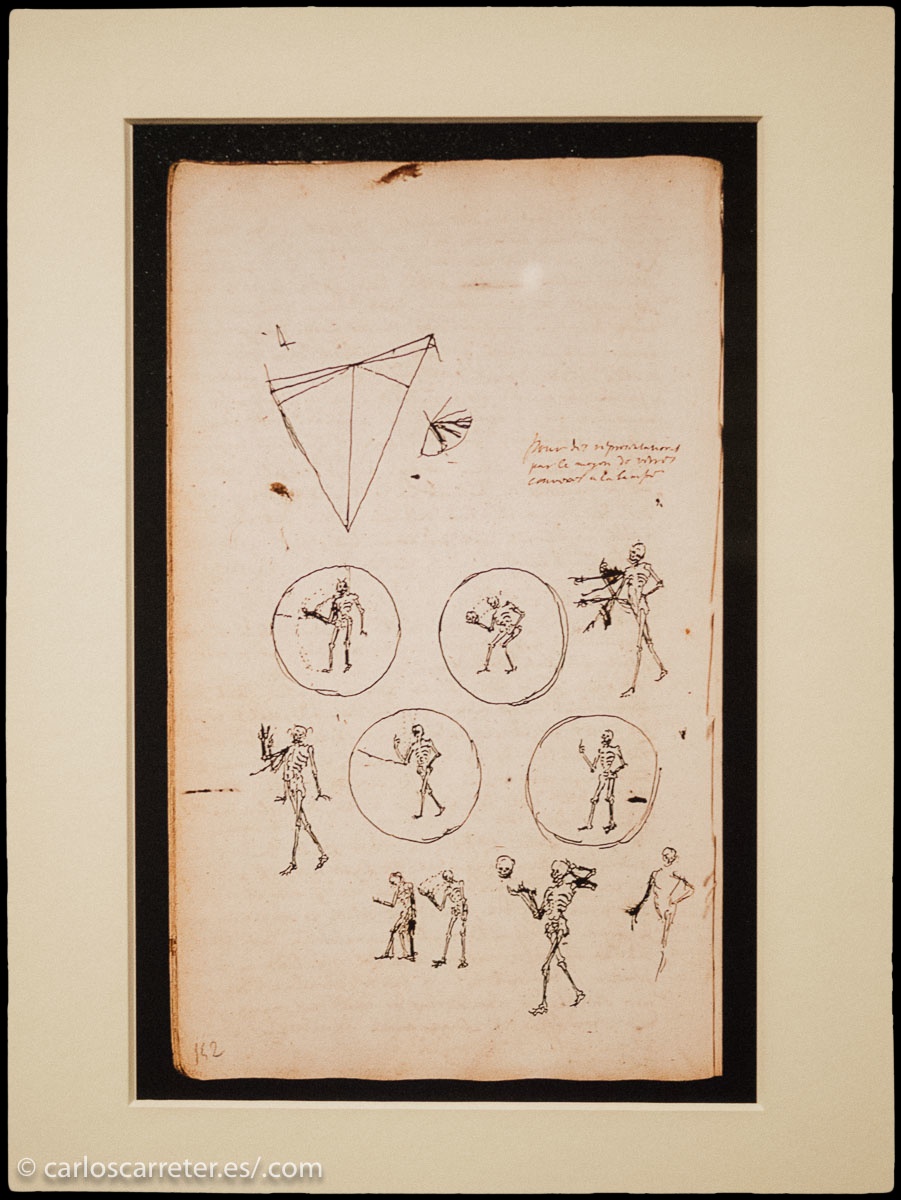 pour des representations
par le moyen de verres
convexes a la lanterne
142
© carloscarreter.es/.com